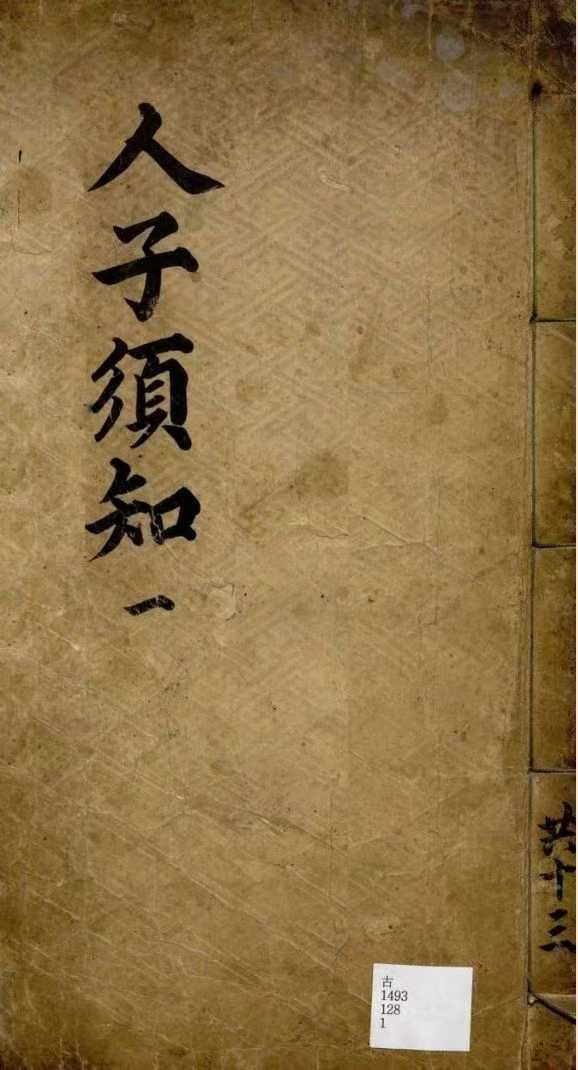 人子須知 一
共十三
古
1493
128
1